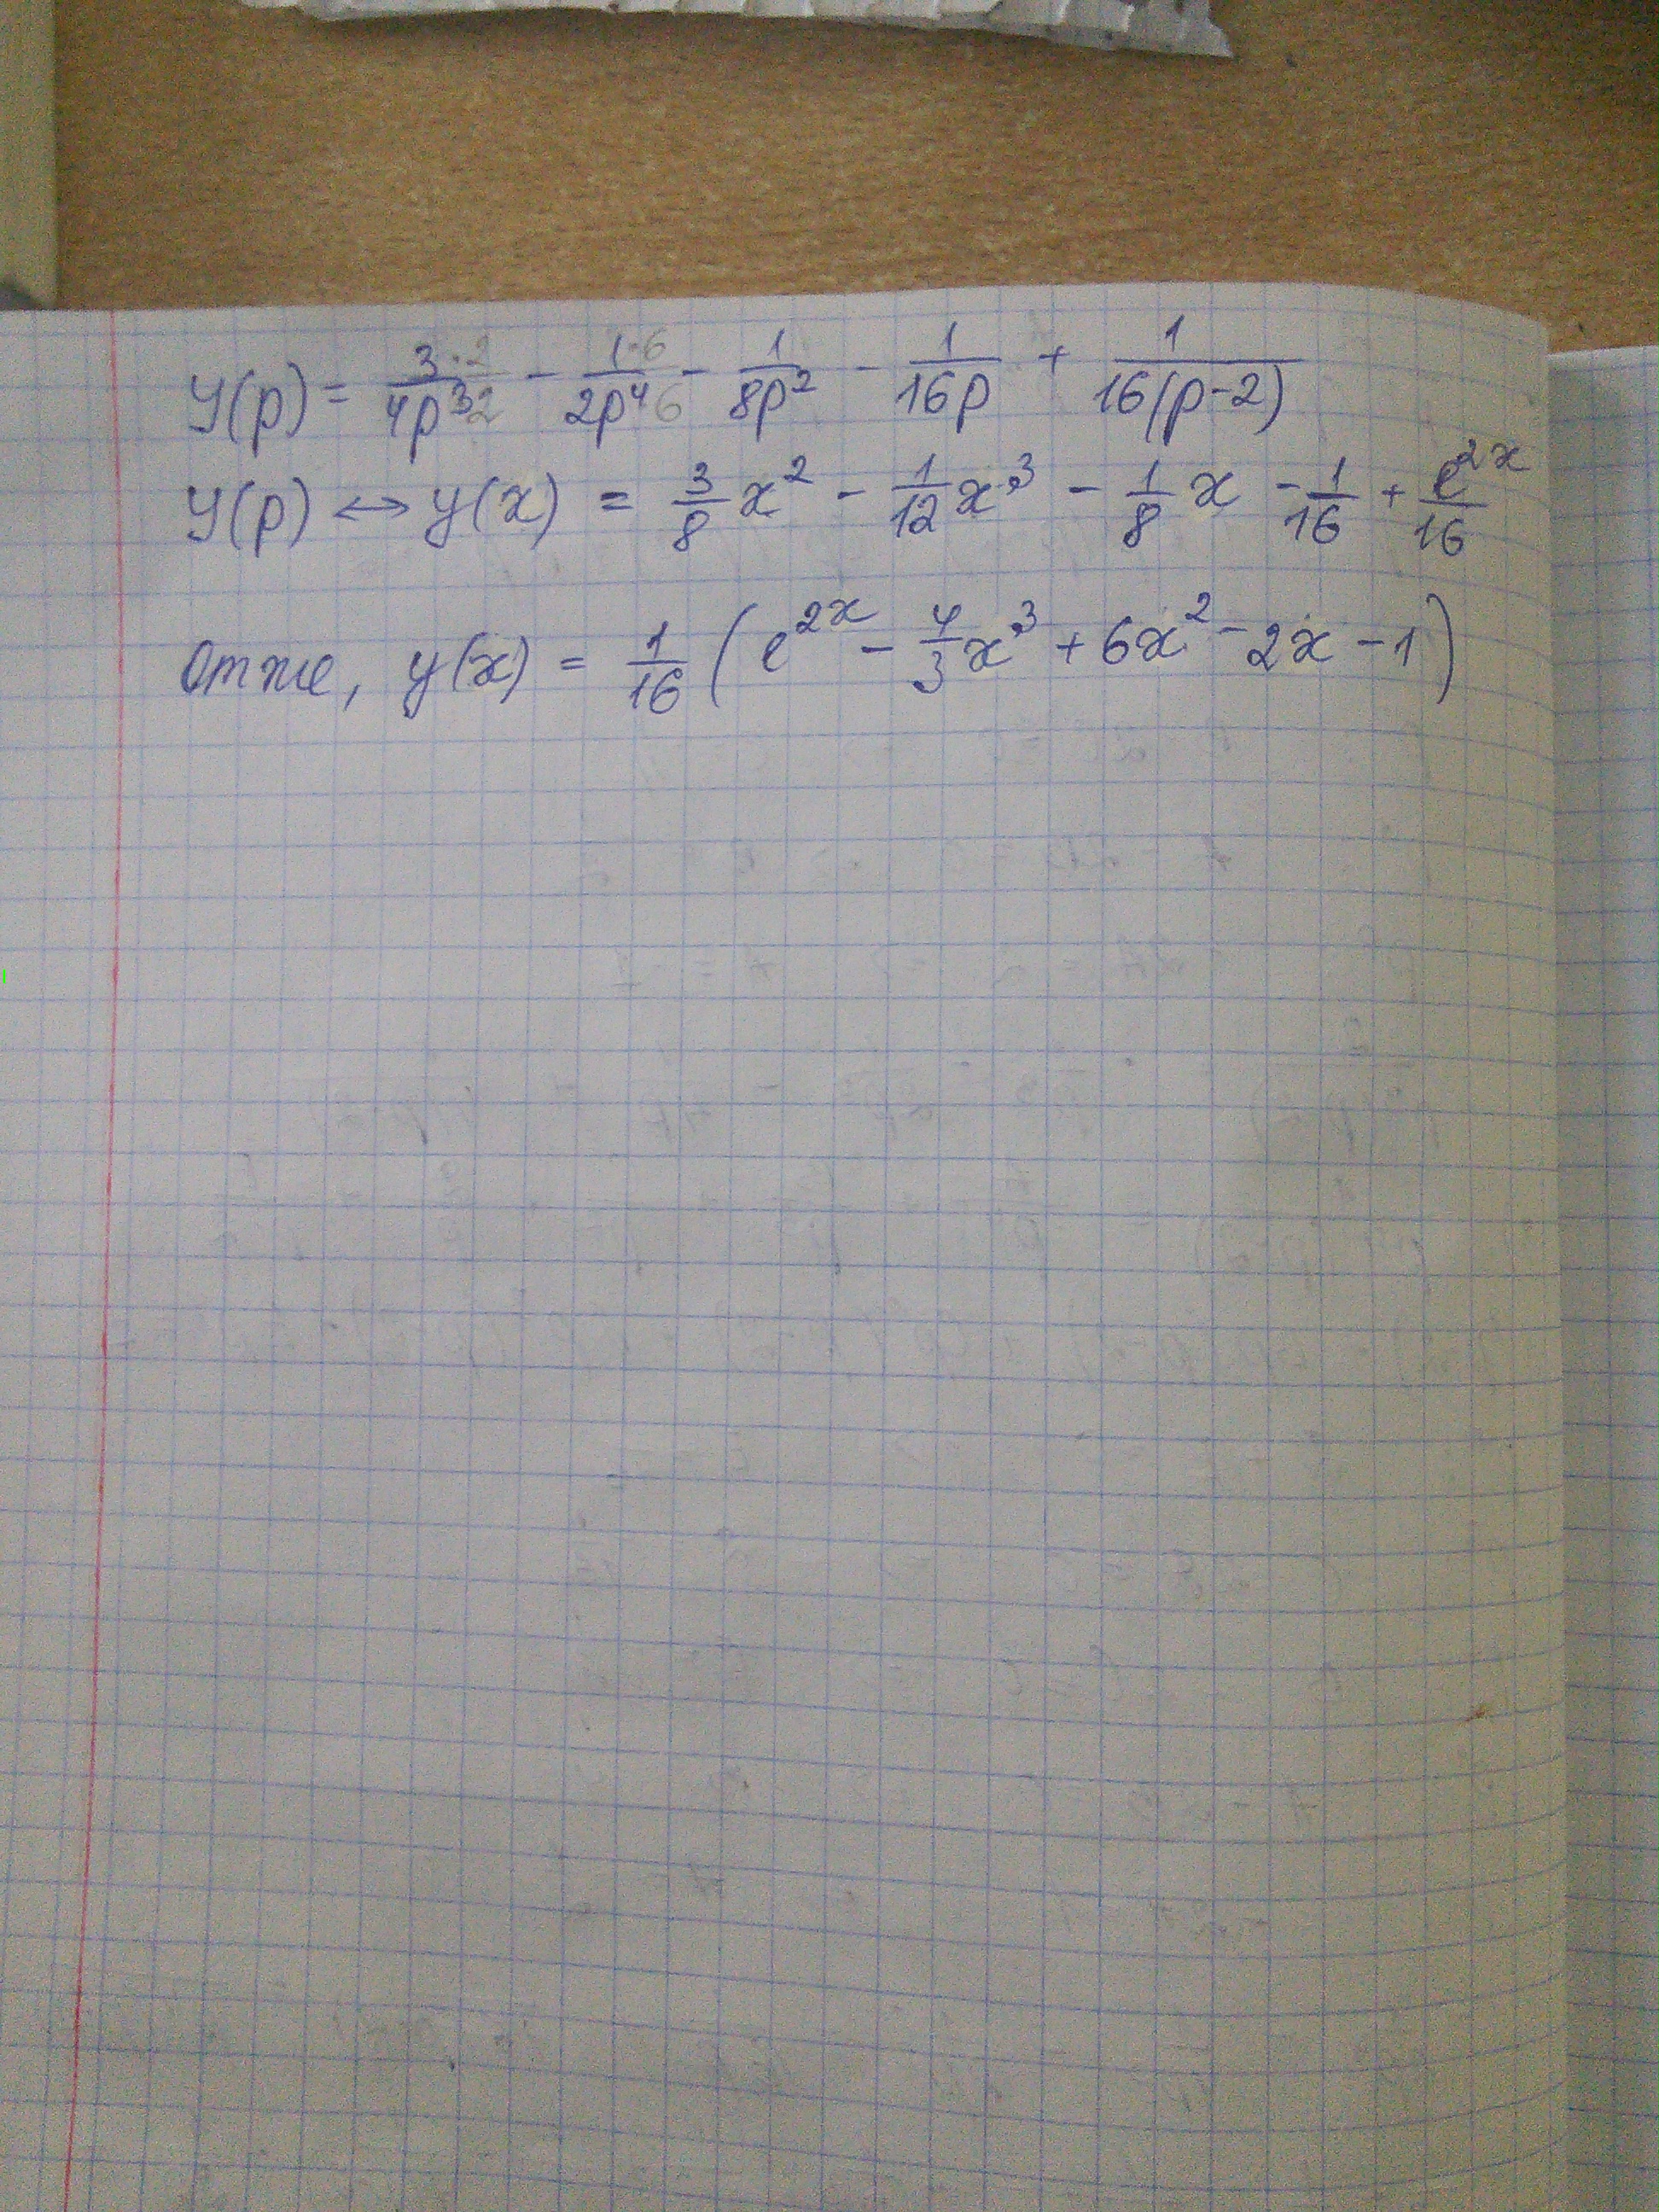 Y(p) = \frac{3 \cdot 2}{4p^3 2} - \frac{1 \cdot 6}{2p^4 6} - \frac{1}{8p^2} - \frac{1}{16p} + \frac{1}{16(p-2)}
Y(p) ↔ y(x) = \frac{3}{8}x^2 - \frac{1}{12}x^3 - \frac{1}{8}x - \frac{1}{16} + \frac{e^{2x}}{16}
Отже, y(x) = \frac{1}{16}(e^{2x} - \frac{4}{3}x^3 + 6x^2 - 2x - 1)